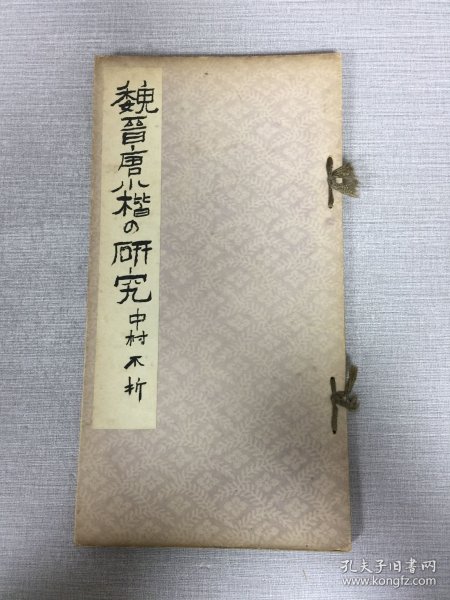 魏晉唐小楷の研究 中村不折
孔夫子旧书网
www.kongfz.com